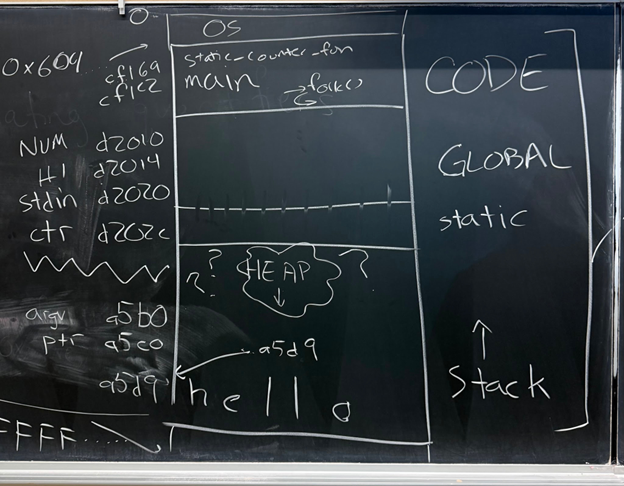 0-
OS
0x609
cf169
cf1c2
static_counter_fun
main
→fork()
CODE
NUM d2010
HI d2014
stdin d2020
ctr d202c
GLOBAL
static
? ? HEAP ?
↓
argv a5b0
ptr a5c0
a5d9
a5d9
hello
↑
Stack
FFFF.....